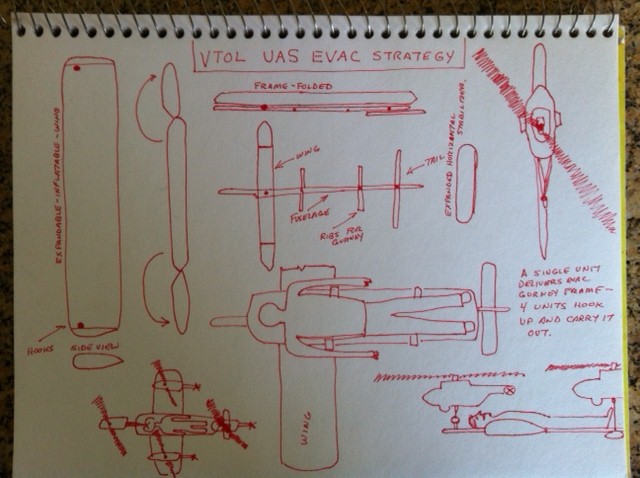 VTOL UAS EVAC STRATEGY
FRAME-FOLDED
EXPANDABLE-INFLATABLE-WING
WING
TAIL
FUSELAGE
RIBS FOR
GURNEY
EXPANDED HORIZONTAL
STABILIZER.
HOOKS
SIDE VIEW
WING
A SINGLE UNIT
DELIVERS EVAC
GURNEY FRAME-
4 UNITS HOOK
UP AND CARRY IT
OUT.